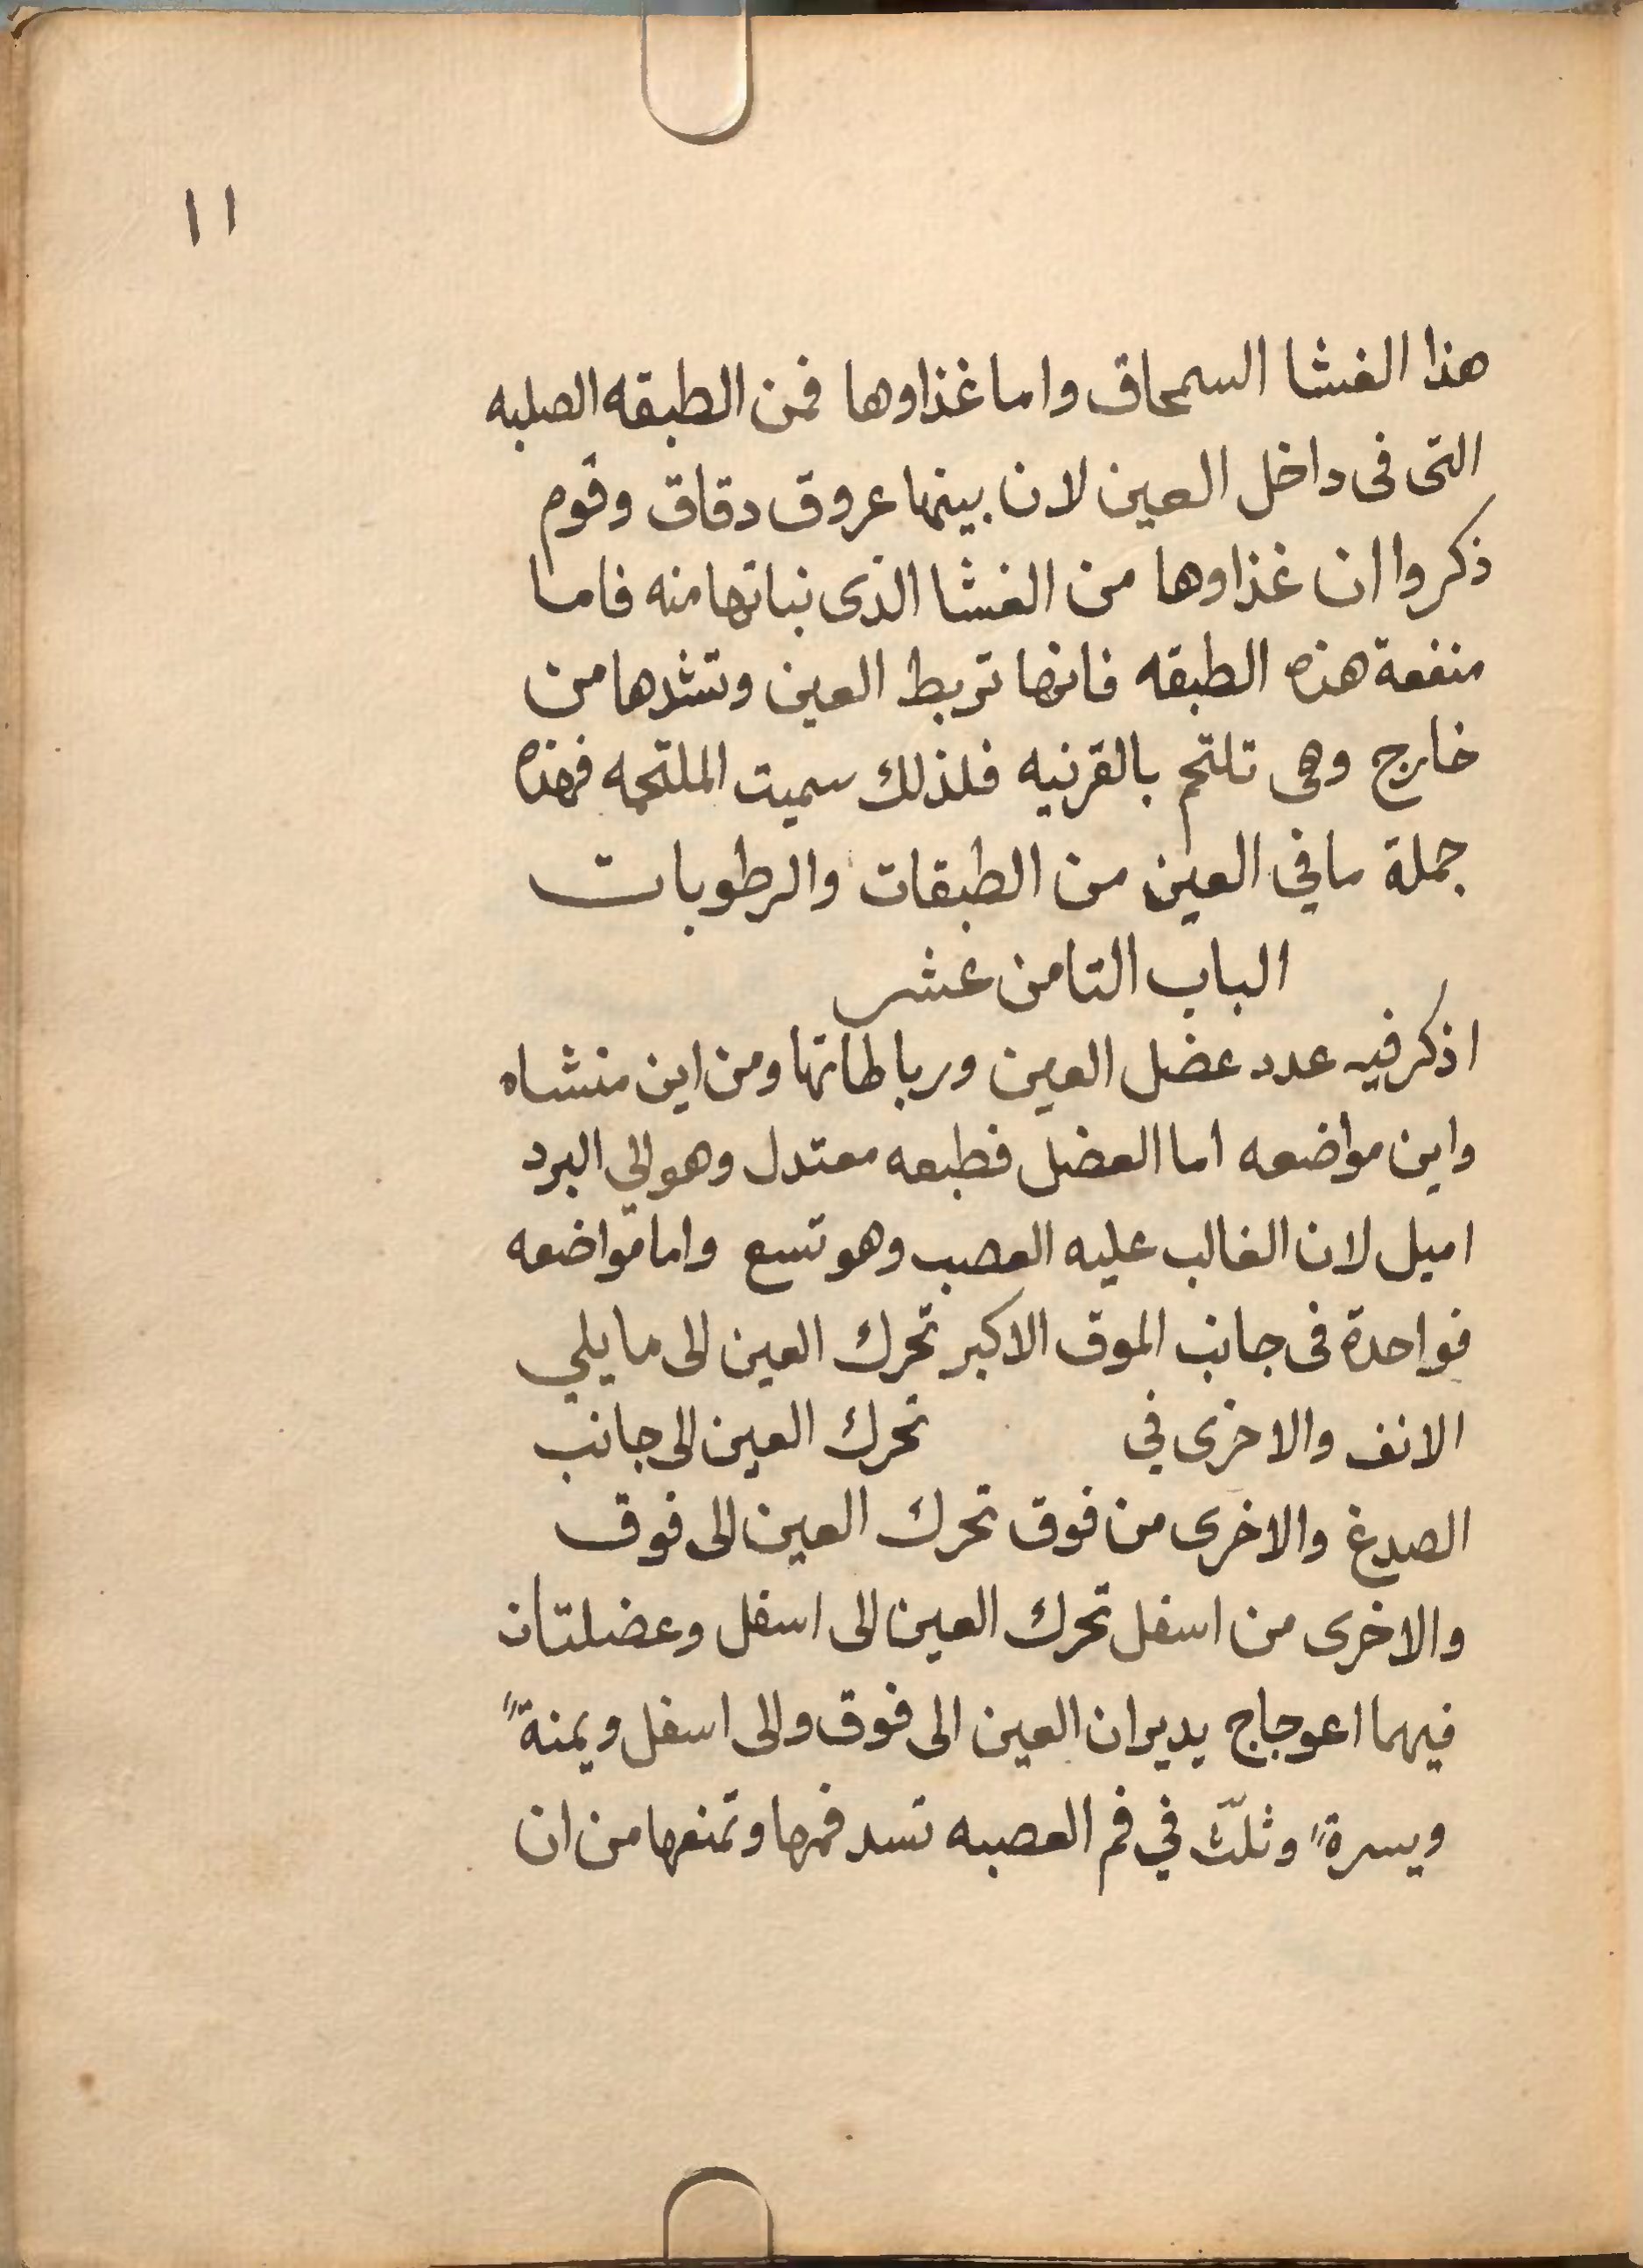 ١١
هذا الغشا السمحاق واما غذاوها فمن الطبقه الصلبه
التى فى داخل العين لان بينها عروق دقاق وقوم
ذكروا ان غذاوها من الغشا الذى نباتها منه فاما
منفعة هذه الطبقه فانها تربط العين وتشدها من
خارج وهى تلتحم بالقرنيه فلذلك سميت الملتحمه فهذه
جملة ما في العين من الطبقات والرطوبات
الباب التامن عشر
اذكر فيه عدد عضل العين ورباطاتها ومن اين منشاه
واين مواضعه اما العضل فطبعه معتدل وهو الي البرد
اميل لان الغالب عليه العصب وهو تسع واما مواضعه
فواحدة فى جانب الموق الاكبر تحرك العين الى ما يلي
الانف والاخرى في تحرك العين الى جانب
الصدغ والاخرى من فوق تحرك العين الى فوق
والاخرى من اسفل تحرك العين الى اسفل وعضلتان
فيهما اعوجاج يديران العين الى فوق والى اسفل ويمنةً
ويسرةً وثلث في فم العصبه تسد فمها وتمنعها من ان